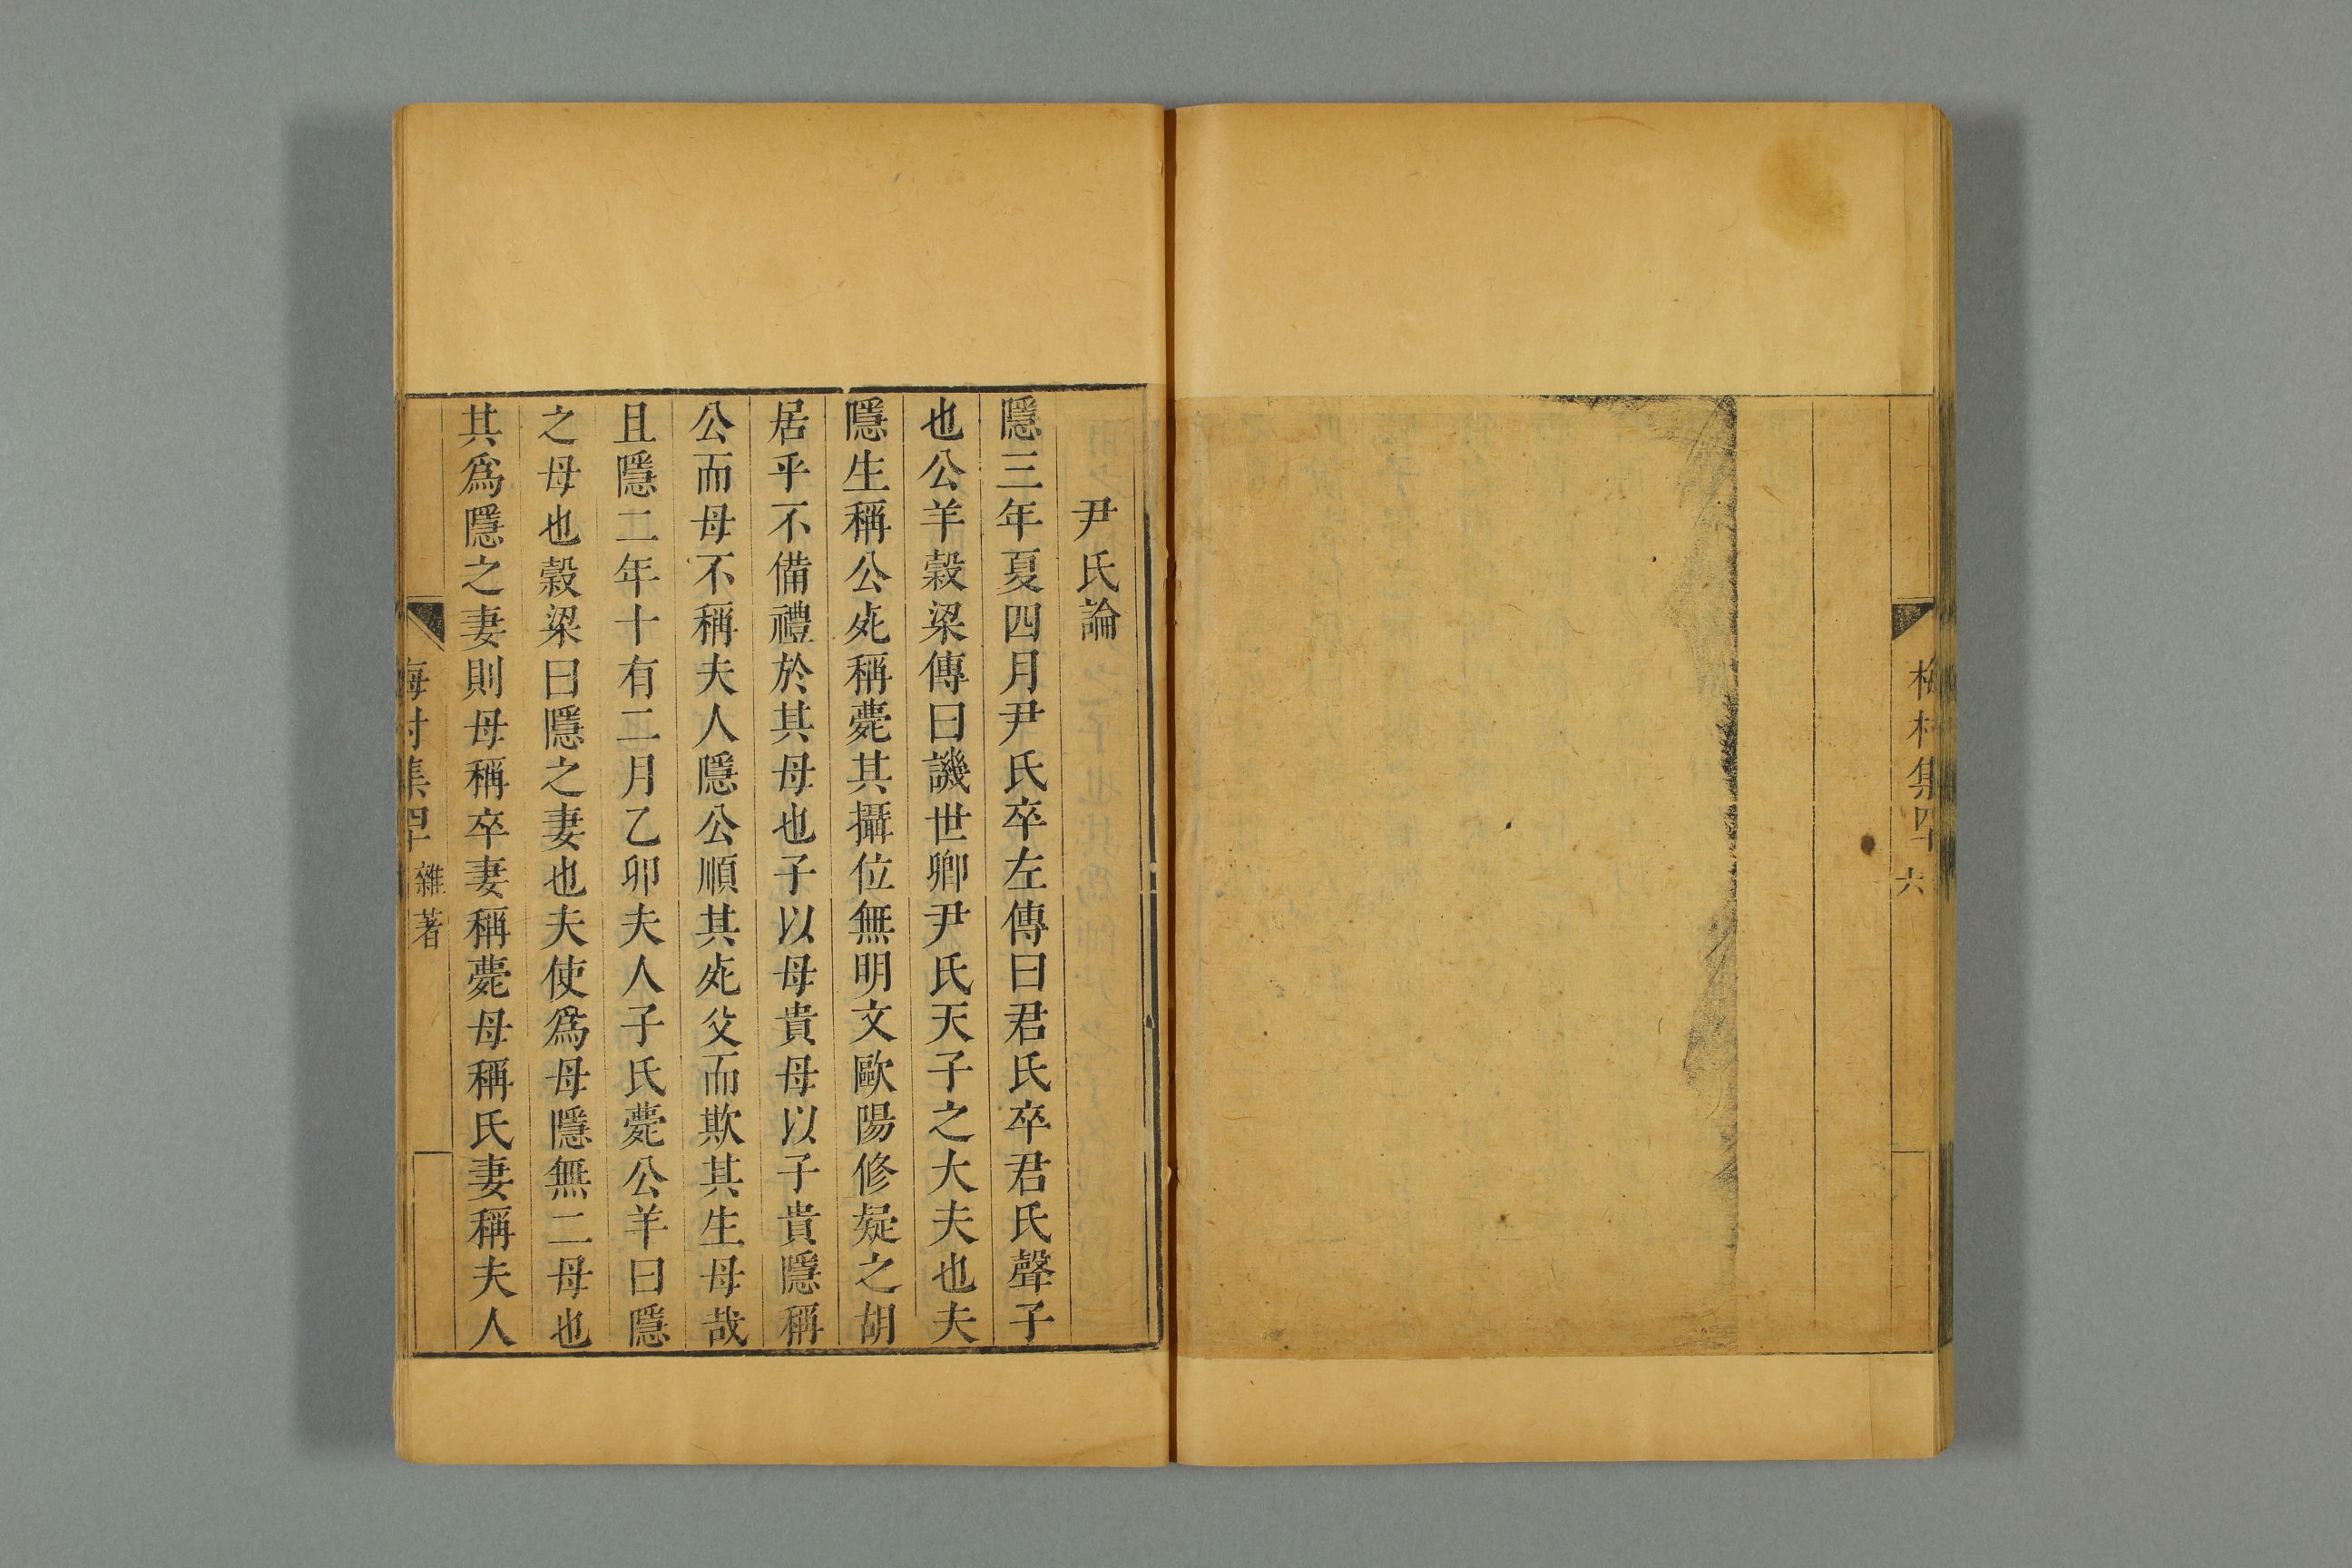 梅村集四十
六
尹氏論
隱三年夏四月尹氏卒左傳曰君氏卒君氏聲子
也公羊榖梁傳曰譏世卿尹氏天子之大夫也夫
隱生稱公死稱薨其攝位無明文歐陽修疑之胡
居乎不備禮於其母也子以母貴母以子貴隱稱
公而母不稱夫人隱公順其死父而欺其生母哉
且隱二年十有二月乙卯夫人子氏薨公羊曰隱
之母也榖梁曰隱之妻也夫使爲母隱無二母也
其爲隱之妻則母稱卒妻稱薨母稱氏妻稱夫人
梅村集四十
雜著